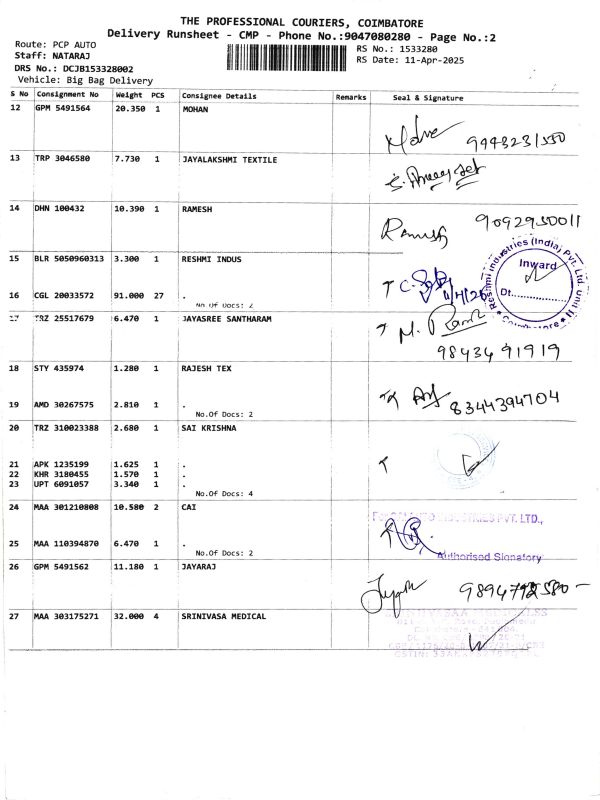 THE PROFESSIONAL COURIERS, COIMBATORE
Delivery Runsheet - CMP - Phone No.:9047080280 - Page No.:2
Route: PCP AUTO
Staff: NATARAJ
DRS No.: DCJB153328002
Vehicle: Big Bag Delivery
RS No.: 1533280
RS Date: 11-Apr-2025
S No Consignment No Weight PCS Consignee Details Remarks Seal & Signature
12 GPM 5491564 20.350 1 MOHAN
9943231550
13 TRP 3046580 7.730 1 JAYALAKSHMI TEXTILE
14 DHN 100432 10.390 1 RAMESH
Ramesh 9092950011
15 BLR 5050960313 3.300 1 RESHMI INDUS
Reshmi Industries (India) Pvt. Ltd. Unit II
Inward
Dt..............
Coimbatore
16 CGL 20033572 91.000 27 .
No.Of Docs: 2
17 TRZ 25517679 6.470 1 JAYASREE SANTHARAM
98434 91919
18 STY 435974 1.280 1 RAJESH TEX
19 AMD 30267575 2.810 1 .
8344394704
No.Of Docs: 2
20 TRZ 310023388 2.680 1 SAI KRISHNA
21 APK 1235199 1.625 1 .
22 KHR 3180455 1.570 1 .
23 UPT 6091057 3.340 1 .
No.Of Docs: 4
24 MAA 301210808 10.580 2 CAI
INDUSTRIES PVT. LTD.,
25 MAA 110394870 6.470 1 .
No.Of Docs: 2
Authorised Signatory
26 GPM 5491562 11.180 1 JAYARAJ
27 MAA 303175271 32.000 4 SRINIVASA MEDICAL